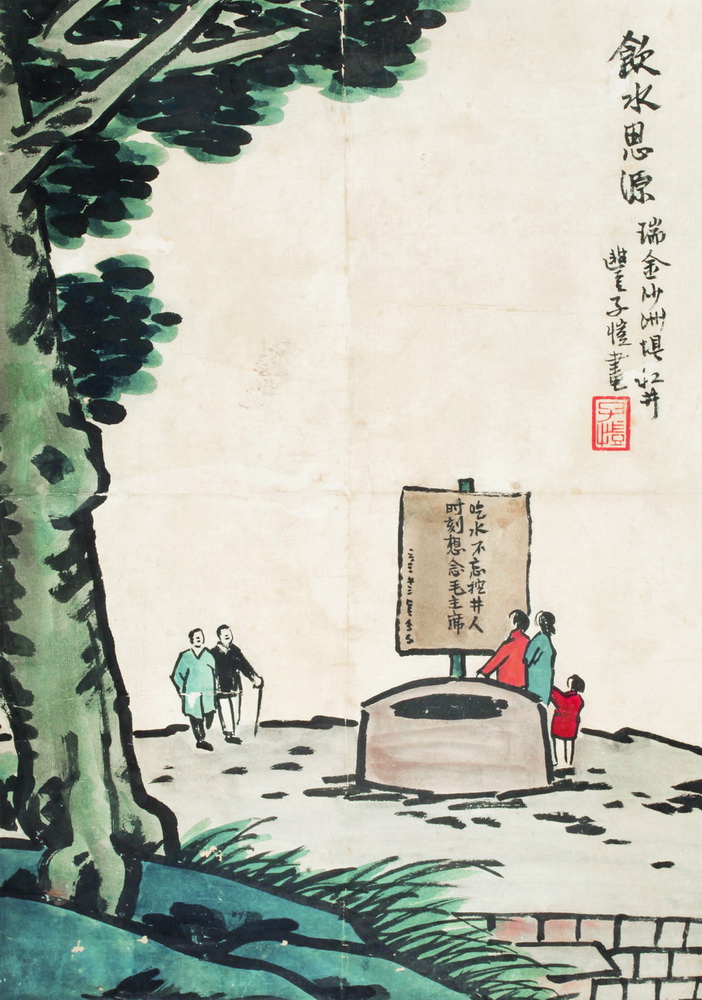 飲水思源
瑞金沙洲垻红井
豐子愷畫
子愷
吃水不忘挖井人
时刻想念毛主席